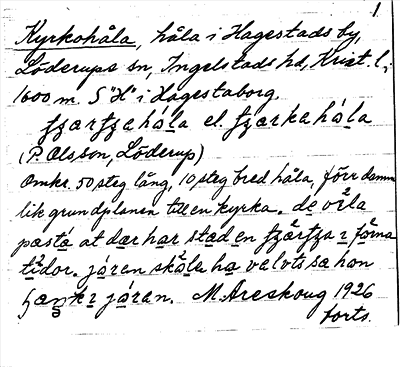 1.
Kyrkohåla, håla i Hagestads by,
Löderups sn, Ingelstads hd, Krist. l.,
1600 m. S "H" i Hagestaborg.
fzærfzahåla el. fzærkahåla
(P. Olsson, Löderup)
Omkr. 50 steg lång, 10 steg bred håla, förr
lik grundplanen till en kyrka. de vīla
pæstå at dær har stæd en fzǣrfza i fǫrna
tīdor. jóren skōle ha valvts sæ hon
i jóren. M. Areskoug 1926
forts.